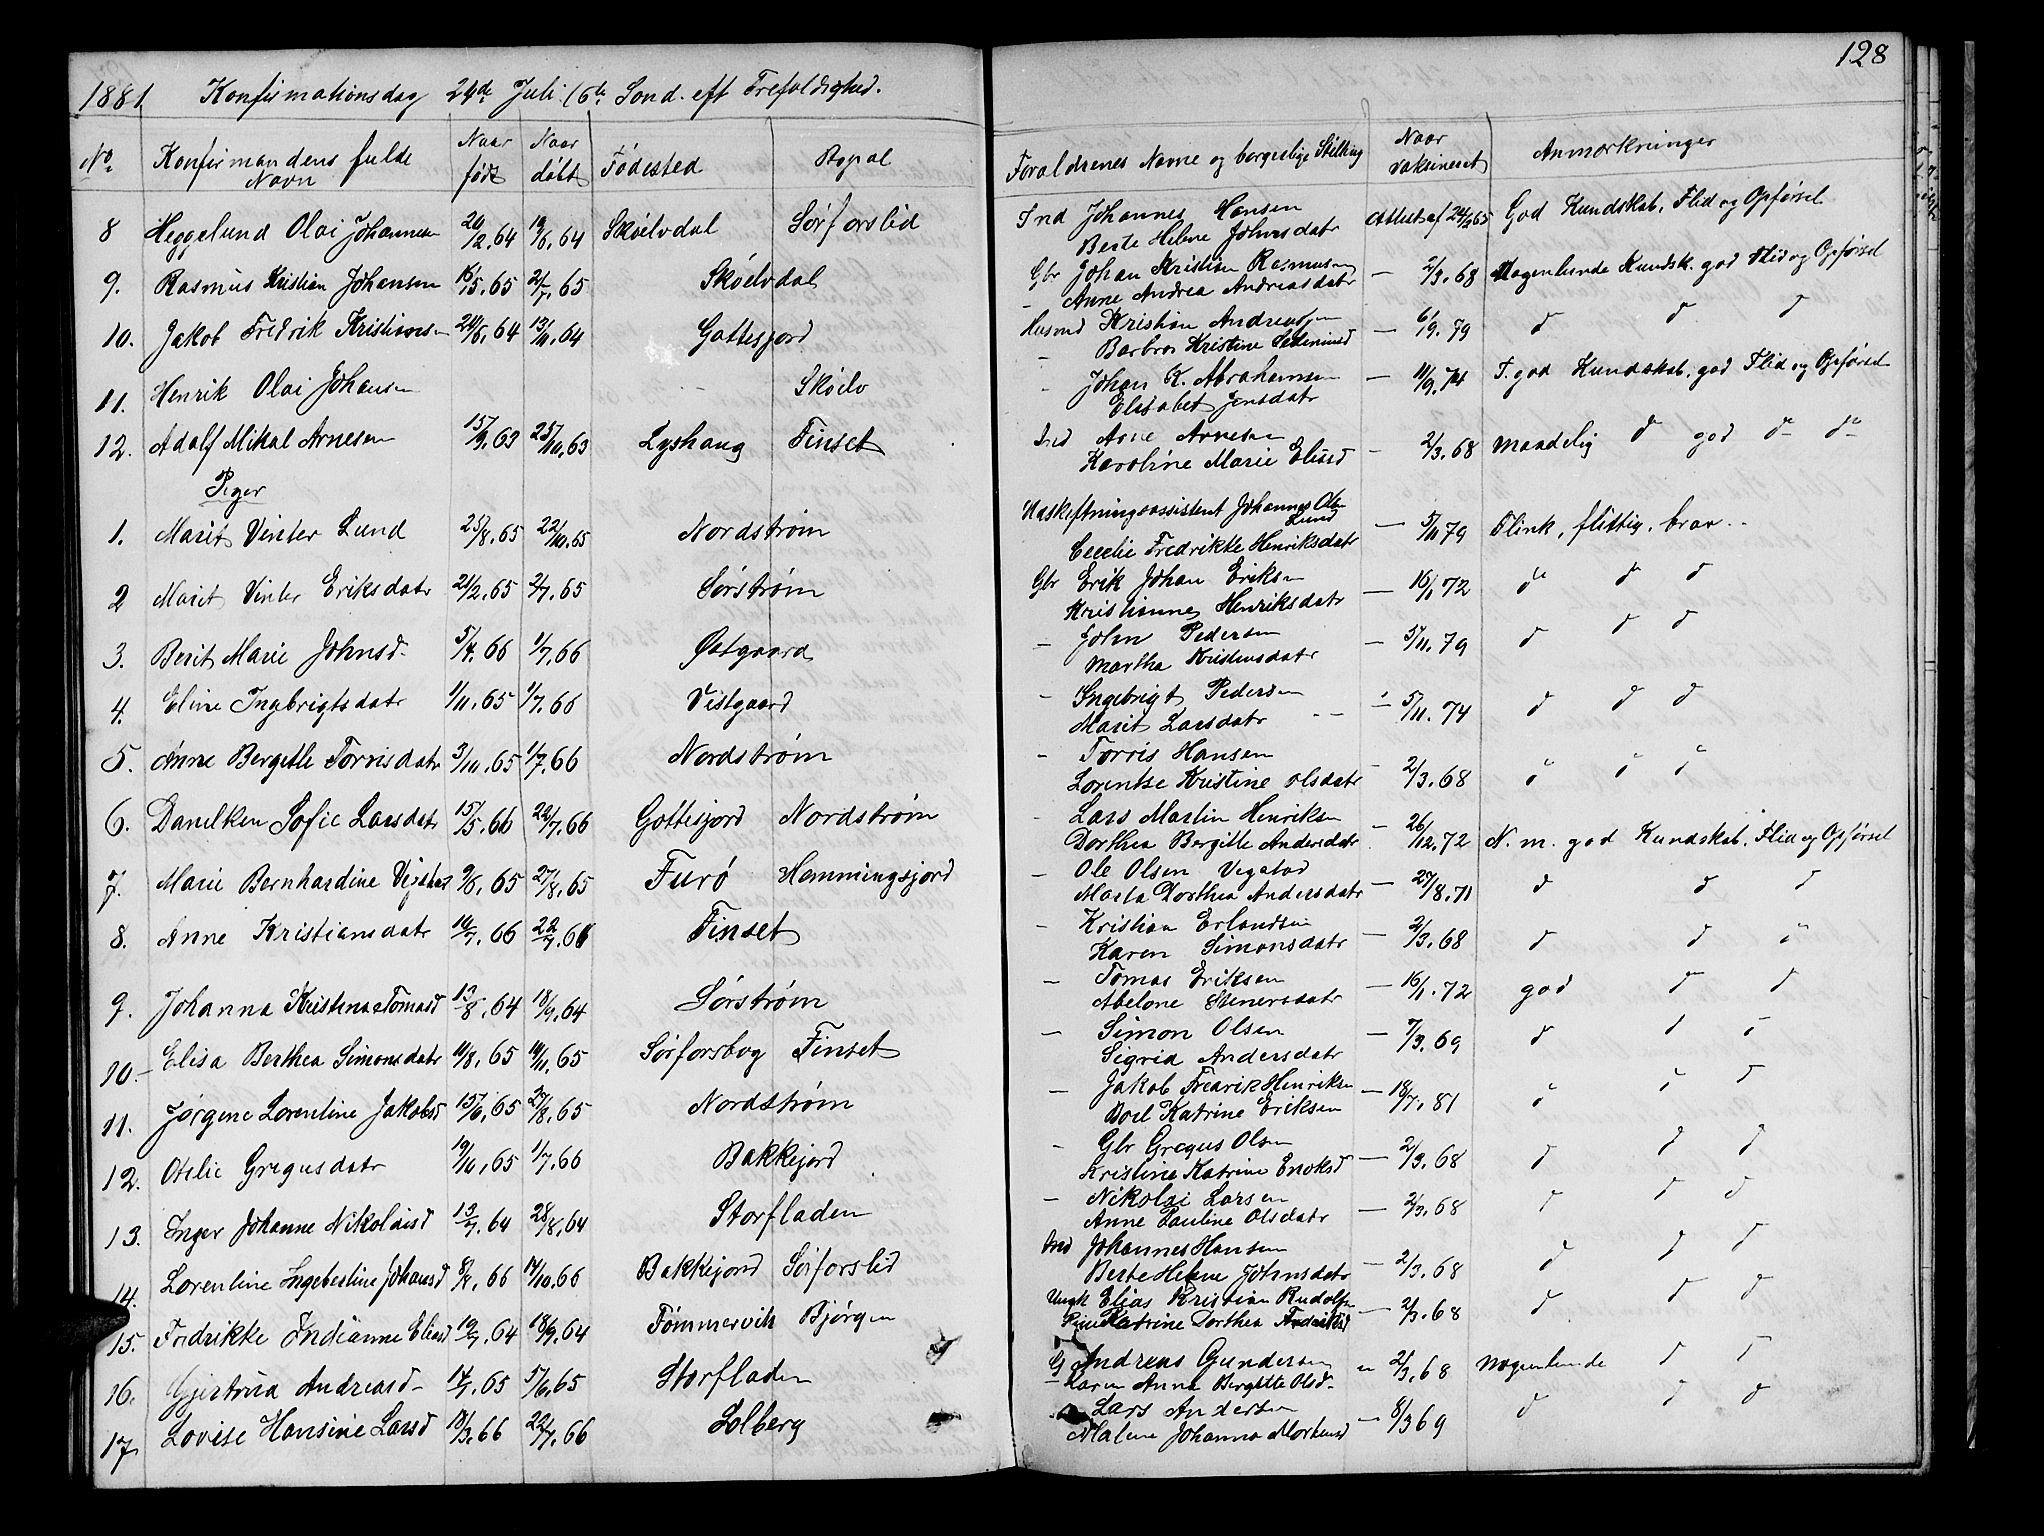 128
1881 Konfirmationsdag 24de Juli (6te Sond. eft Trefoldighed.
No. Konfirmandens fulde Navn Naar født Naar døbt Fødested Bopæl Forældrenes Navne og borgerlige Stilling Naar vakcineret Anmærkninger
8 Heggelund Olai Johannesen 20/2.64 19/6.64 Skøelvdal Sørforslid Ind Johannes Hansen Attest af 24/2 65 God Kundskab, Flid og Opførsel
Berte Helene Johnsdatr
9. Rasmus Kristian Johansen 16/5.65 2/7.65 Skøelvdal Gbr Johan Kristian Rasmusen — 2/3.68 Nogenlunde Kundsk. god Flid og Opførsel
- Anne Andrea Andreasdatr
10. Jakob Fredrik Kristiansen 24/6.64 13/11.64 Gottesjord Husmd Kristian Andreassen — 6/9.79 d d d
- Barbro Kristine
11. Henrik Olai Johansen Skøelv - Johan K. Abrahamsen — 11/9.74 T. god Kundskab. god Flid og Opførsel
Elisabet Jensdatr
12. Adolf Mikal Arnesen 15/9.63 25/10.63 Lyshaug Finset Ind Arne Arnesen — 2/3.68 Maadelig d god d d
Karoline Marie Eliasd
Piger
1. Marit Vinter Lund 25/8.65 22/10.65 Nordstrøm Udskiftningsassistent Johannes Ols. Lund — 5/11 79 Flink, flittig, brav.
Cecelie Fredrikke Henriksdatr
2 Marit Vinter Eriksdatr 21/2.65 2/7.65 Sørstrøm Gbr Erik Johan Eriksen — 16/1 72 d d d
Kristianne Henriksdatr
3. Berit Marie Johnsd. 5/4.66 1/7.66 Østgaard - John Pedersen — 5/11.79 d d d
Martha Kristensdatr
4. Eline Ingbrigtsdatr 1/11.65 1/7.66 Vestgaard - Ingebrigt Pedersen - 5/11.74 d d d
Marit Larsdatr
5. Anne Bergitte Torrisdatr 3/10.65 1/7.66 Nordstrøm - Torris Hansen - 2/3.68 d d d
Lorentse Kristine Olsdatr
6. Danelken Sofie Larsdatr 15/5.66 22/7.66 Gottesjord Nordstrøm - Lars Martin Henriksen - 26/12.72 N. m. god Kundskab, Flid og Opførsel
Dorthea Bergitte Andersdatr
7. Marie Bernhardine Vegstad 9/6.65 27/8.65 Furø Hemmingsjord - Ole Olsen Vegstad — 27/8.71 d d d
Marta Dorthea Andersdatr
8. Anne Kristiansdatr 14/7.66 22/7.66 Finset - Kristian Erlandsen — 2/3.68 d d d
Karen Simonsdatr
9. Johanna Kristina Tomasd 13/8.64 18/9.64 Sørstrøm - Tomas Eriksen — 16/1.72 god d d
Abelone Steneresdatr
10. Elisa Berthea Simonsdatr 11/8.65 14/11.65 Sørforsbog Finset - Simon Olsen — 7/3.69 d d d
Sigrid Andersdatr
11. Jørgene Lorentine Jakobsd 15/6.65 27/8.65 Nordstrøm - Jakob Fredrik Henriksen — 18/7.81 d d d
Boel Katrine Eriksen
12. Otelie Gregusdatr 19/10.65 1/7.66 Bakkejord - Gbr Gregus Olsen — 2/3.68 d d d
Kristina Katrine Enoksd
13. Inger Johanne Nikolaisd 13/7.64 28/8.64 Storfladen - Nikolai Larsen — 2/3.68 d d d
Anne Pauline Olsdatr
14. Lorentine Ingebertine Johansd 8/8.66 14/10.66 Bakkejord Sørforslid Ind Johannes Hansen — 2/3.68 d d d
Berte Helene Johnsdatr
15. Fredrikke Indianne Eliasd 19/7.64 18/9.64 Tømmervik Bjørgen Ungk Elias Kristian Rudolfsen — 2/3.68 d d d
Pige Katrine Dorthea
16. Gjertrud Andreasd- 14/1.65 5/6.65 Storfladen G Andreas Gundersen " 2/3.68 nogenlunde d d
- Karen Anna Bergitte Olsd.
17 Lovise Hansine Larsd 18/3.66 22/7.66 Solberg Lars Andersen — 8/3 69 d d d
Malene Johanna Mortensd